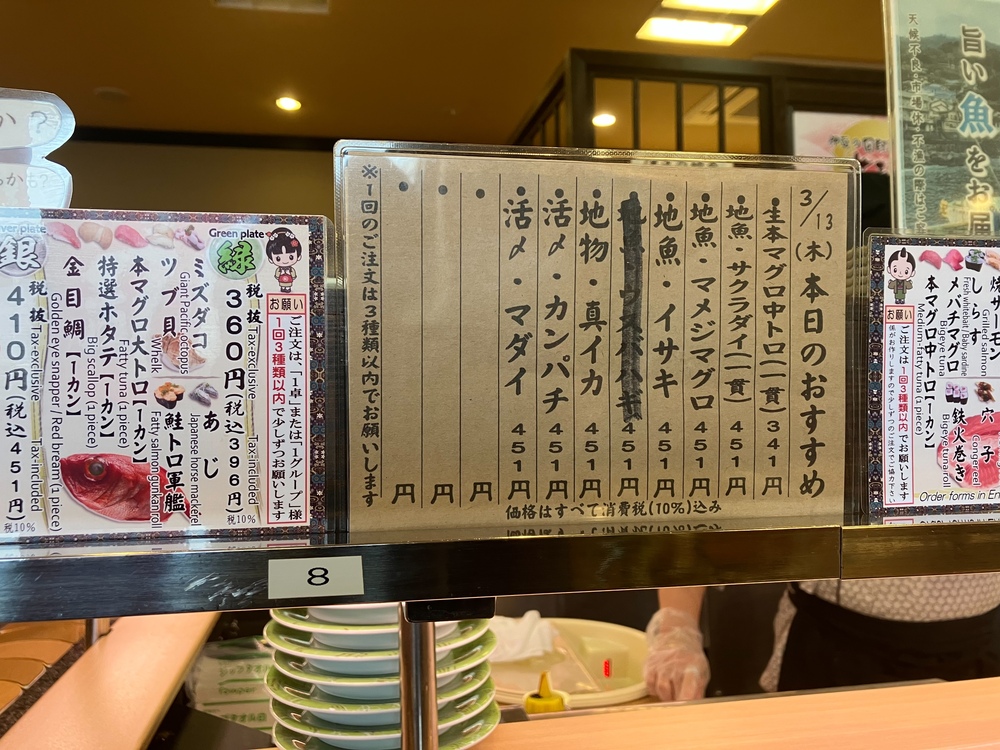 3/13(木)本日のおすすめ
・生本マグロ中トロ(一貫)341円
・地魚・サクラダイ(一貫)451円
・地魚・マメジマグロ451円
・地魚・イサキ451円
451円
・地物・真イカ451円
・活〆・カンパチ451円
・活〆・マダイ451円
・円
・円
・円
※1回のご注文は3種類以内でお願いします
価格はすべて消費税(10%)込み
お願い
ご注文は、「1卓」または「1グループ」様
1回3種類以内で少しずつお願いします
Green plate
緑
税抜
360円(税込396円)
Tax-exclusive
Tax-included
税10%
ミズダコ
Giant Pacific octopus
あじ
Japanese horse mackerel
ツブ貝
Whelk
鮭トロ軍艦
Fatty salmon gunkan roll
本マグロ大トロ【一カン】
Fatty tuna (1 piece)
特選ホタテ【一カン】
Big scallop (1 piece)
金目鯛【一カン】
Golden eye snapper / Red bream (1 piece)
銀
税抜
410円(税込451円)
Tax-exclusive
Tax-included
税10%
8
旨い魚をお届
天候不良・市場休・不漁の際は
焼サーモン
Grilled salmon
穴子
Conger eel
しらす
Fresh whitebait / Baby sardine
メバチマグロ
Bigeye tuna
鉄火巻き
Bigeye tuna roll
本マグロ中トロ【一カン】
Medium-fatty tuna (1 piece)
お願い
ご注文は1回3種類以内でお願いします
Order forms in En